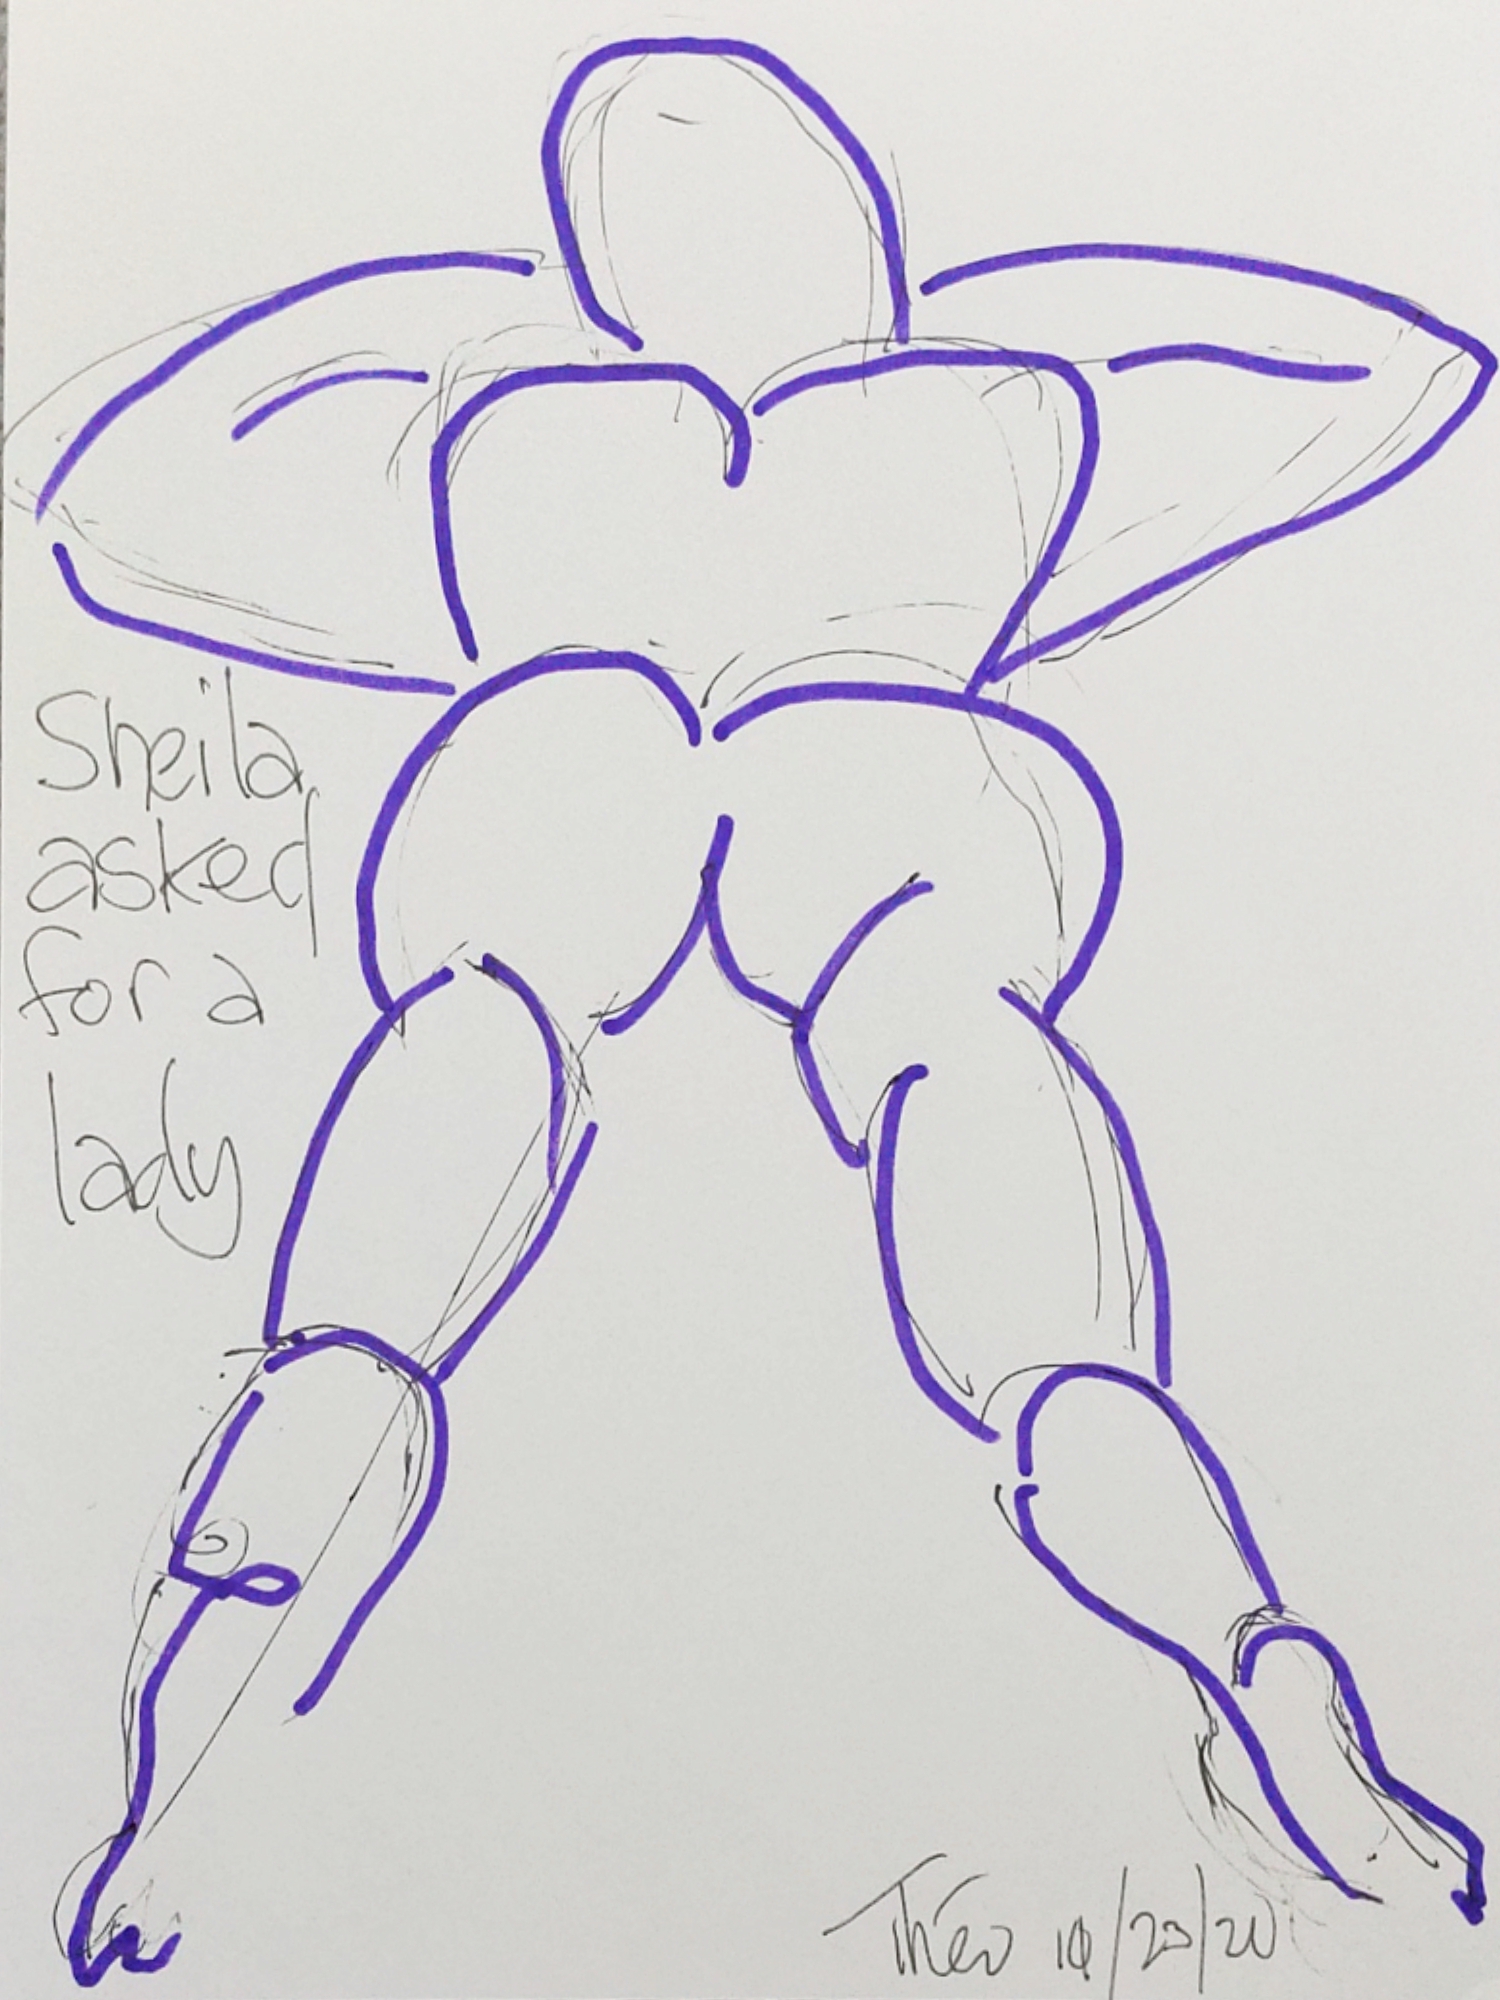 Sheila
asked
for a
lady
Théo 10/23/20